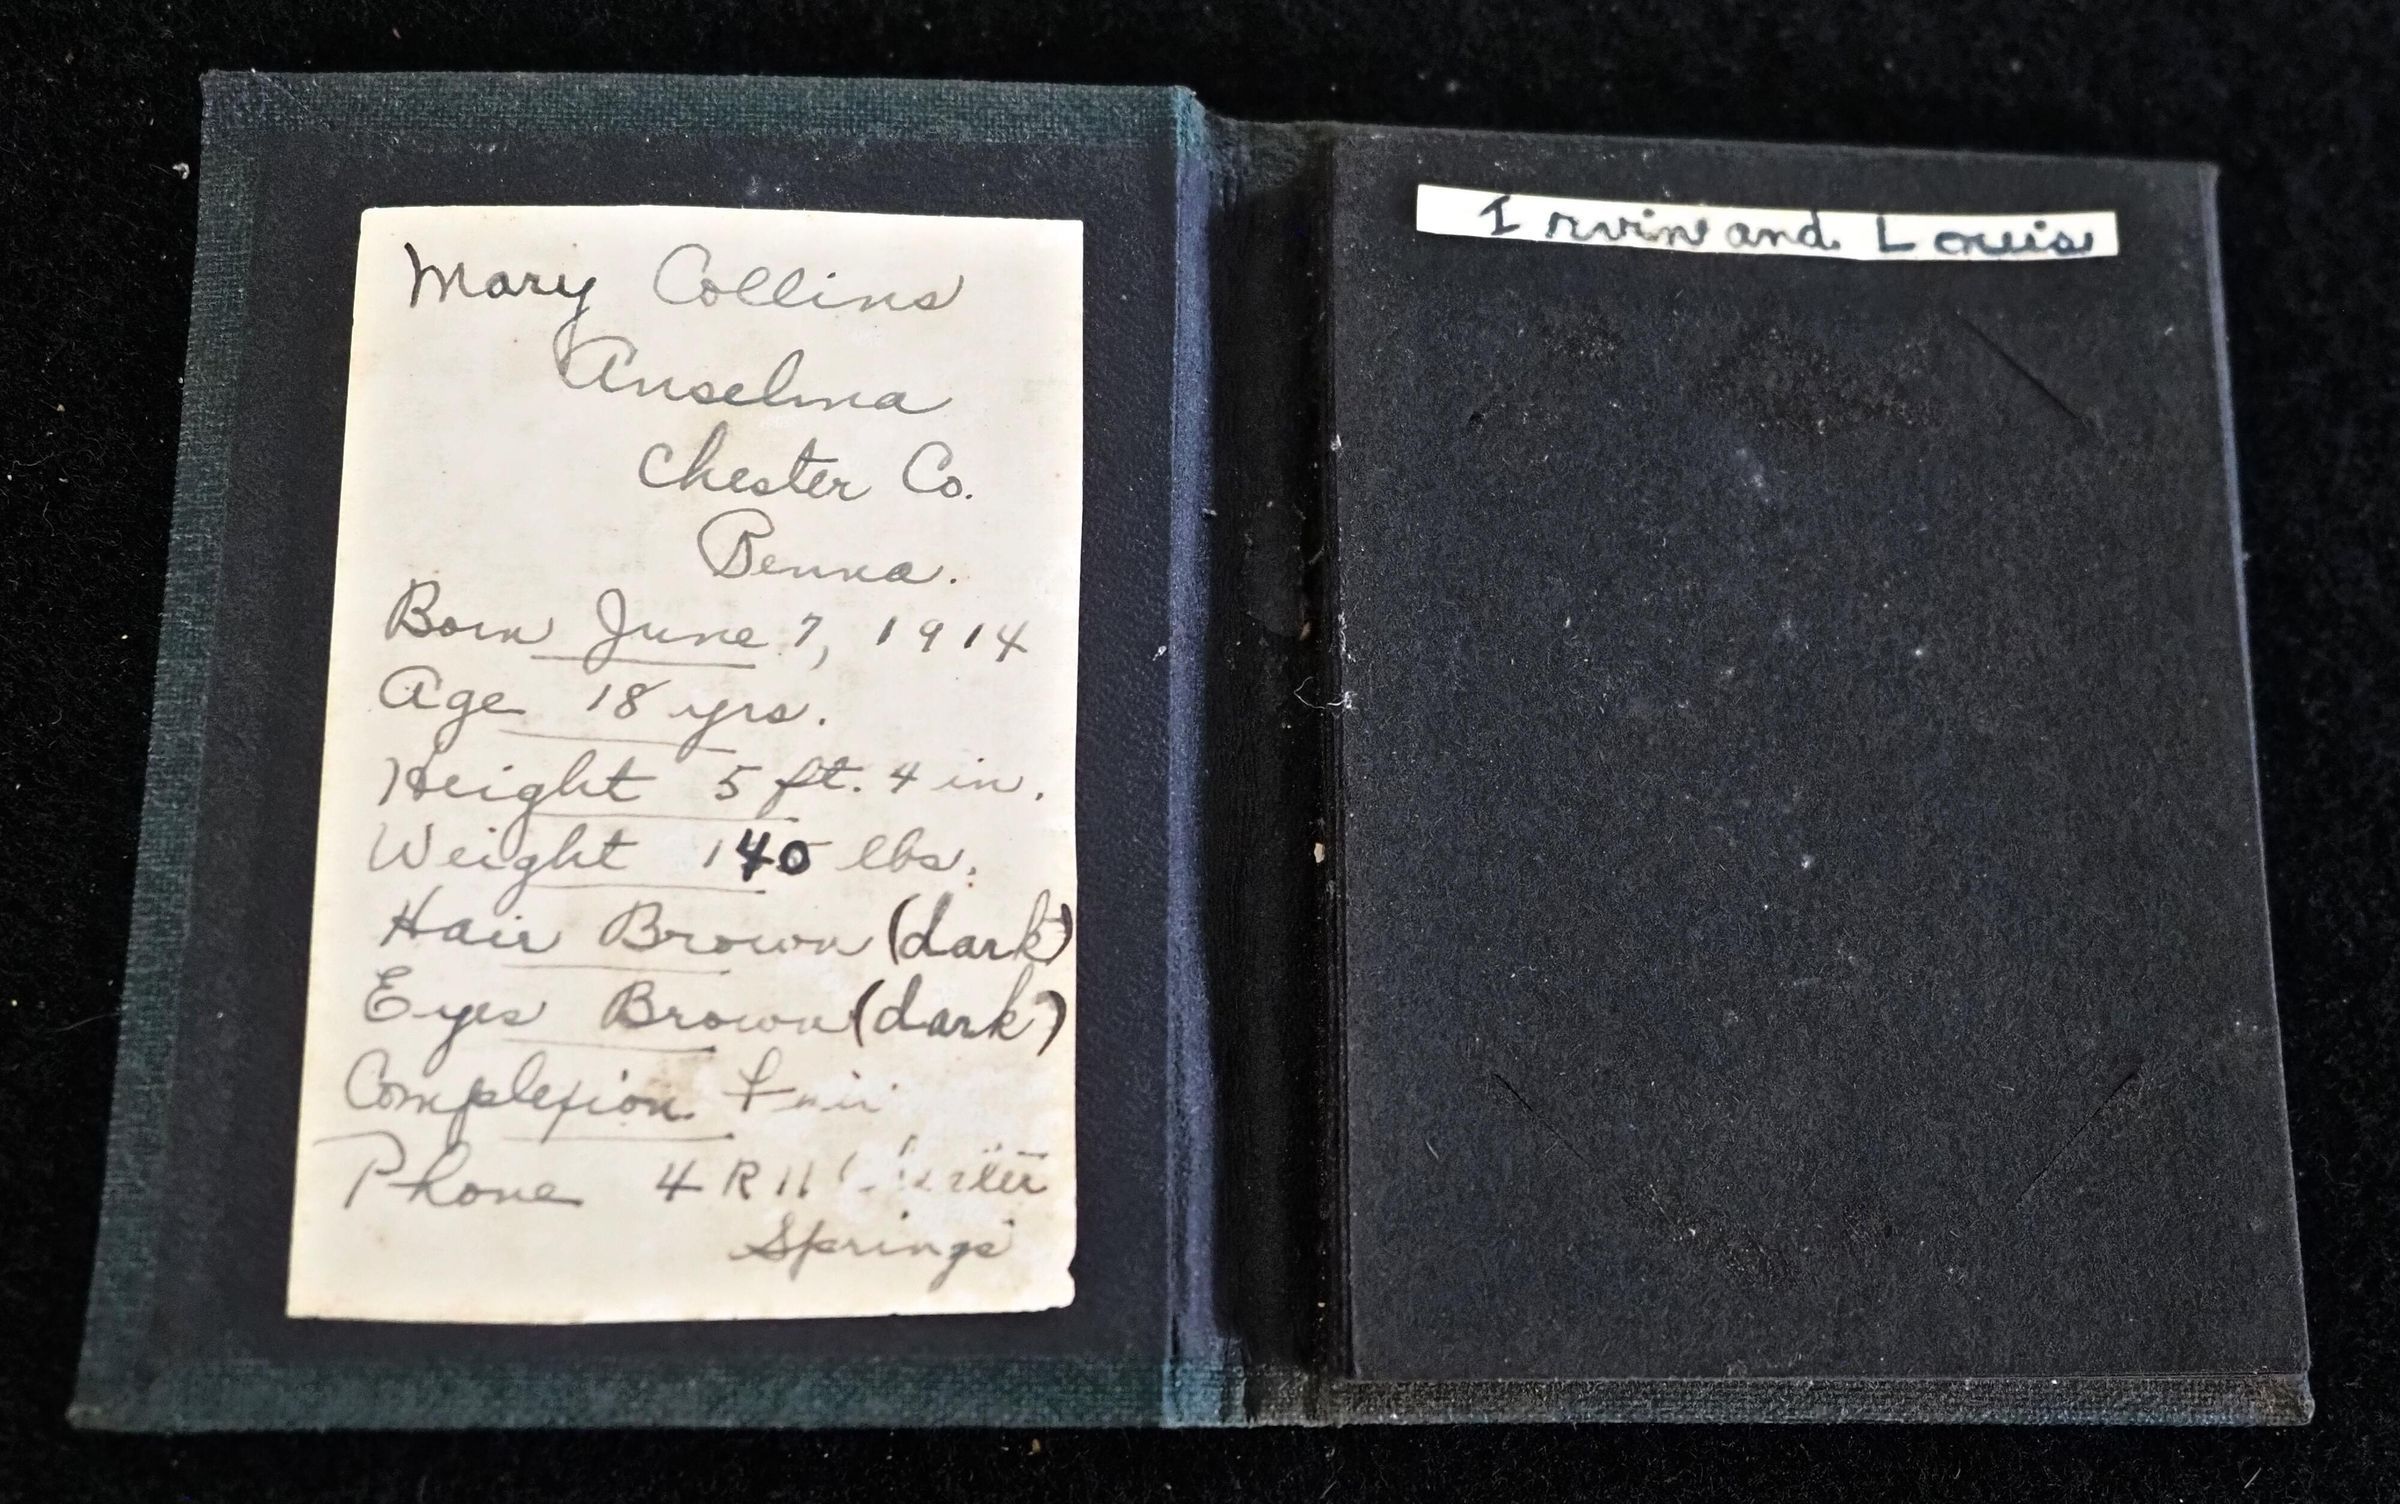 Mary Collins
Anselma
Chester Co.
Penna.
Born June 7, 1914
Age 18 yrs.
Height 5 ft. 4 in.
Weight 140 lbs.
Hair Brown (dark)
Eyes Brown (dark)
Complexion Fair
Phone 4 R 11
Springs
Irvin and Louis